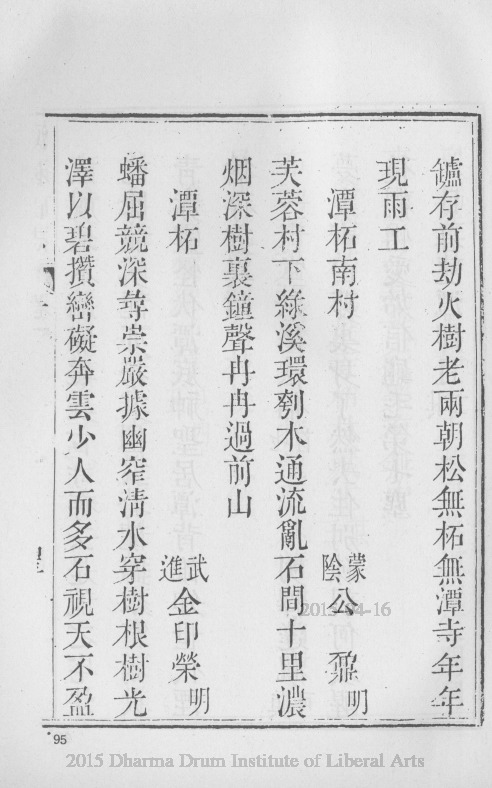 鑪存前劫火樹老兩朝松無柘無潭寺年年
現雨工
潭柘南村 蒙陰公鼐明
芙蓉村下綠溪環刳木通流亂石間十里濃
烟深樹裏鐘聲冉冉過前山
潭柘 武進金印榮明
蟠屈競深尋崇嚴據幽窄清水穿樹根樹光
澤以碧攢巒礙奔雲少人而多石視天不盈
95
2015-04-16
2015 Dharma Drum Institute of Liberal Arts